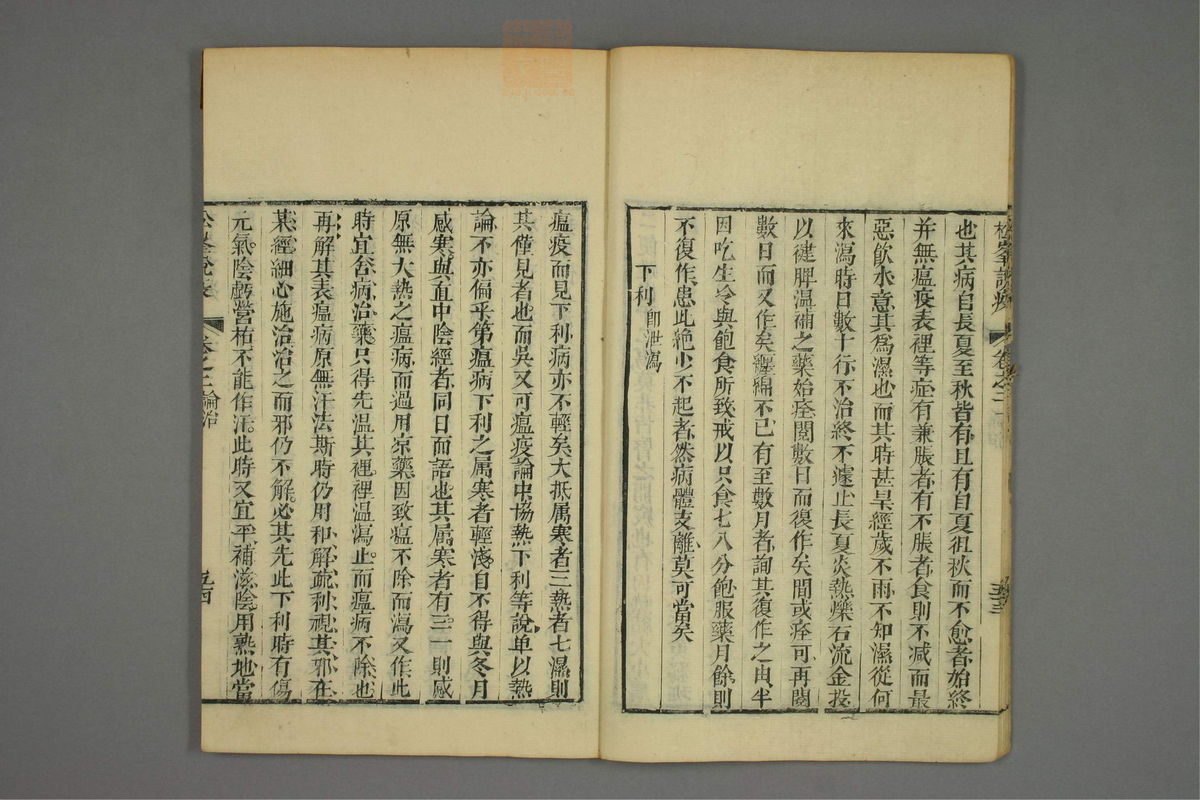 松峯說疫
卷之二
也其病自長夏至秋皆有且有自夏徂秋而不愈者始終
并無瘟疫表裡等症有兼脹者有不脹者食則不減而最
惡飲水意其為濕也而其時甚旱經歲不雨不知濕從何
來瀉時日數十行不治終不遽止長夏炎熱爍石流金投
以健脾溫補之藥始痊閱數日而復作矣間或痊可再閱
數日而又作矣纏綿不已有至數月者詢其復作之由半
因吃生冷與飽食所致戒以只食七八分飽服藥月餘則
不復作患此絶少不起者然病體支離莫可當矣
下利 即泄瀉
瘟疫而見下利病亦不輕矣大抵属寒者三熱者七濕則
其僅見者也而吳又可瘟疫論中協熱下利等說单以熱
論不亦偏乎第瘟病下利之属寒者輕淺自不得與冬月
感寒與直中陰經者同日而語也其属寒者有三一則感
原無大熱之瘟病而過用凉藥因致瘟不除而瀉又作此
時宜舍病治藥只得先温其裡裡温瀉止而瘟病不除也
再解其表瘟病原無汗法斯時仍用和解疏利視其邪在
某經細心施治治之而邪仍不解必其先此下利時有傷
元氣陰虧營枯不能作汗此時又宜平補滋陰用熟地當
松峯說疫
卷之二 論治
五四